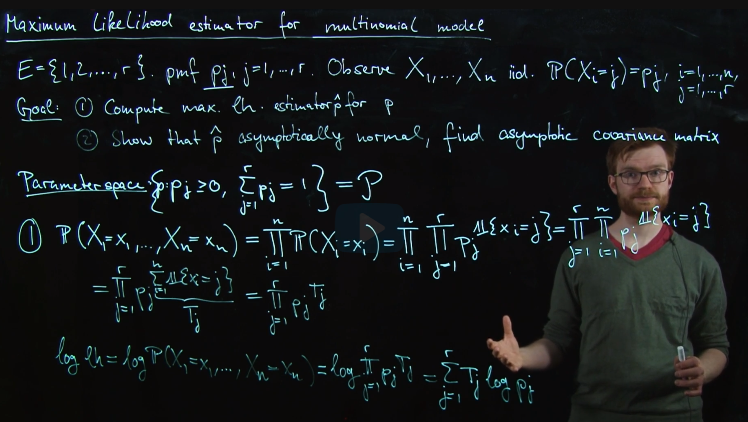 Maximum likelihood estimator for multinomial model
E={1,2,...,r}. pmf pj, j=1,...,r. Observe X₁,...,Xn iid. ℙ(Xi=j)=pj, i=1,...,n, j=1,...,r
Goal: ① Compute max. lh. estimator p̂ for p
② Show that p̂ asymptotically normal, find asymptotic covariance matrix
Parameter space: {p: pj≥0, ∑_{j=1}^{r} pj = 1} = P
① ℙ(X₁=x₁,...,Xn=xn) = ∏_{i=1}^{n} ℙ(Xi=xi) = ∏_{i=1}^{n} ∏_{j=1}^{r} pj^{𝟙{xi=j}} = ∏_{j=1}^{r} ∏_{i=1}^{n} pj^{𝟙{xi=j}}
= ∏_{j=1}^{r} pj^{∑_{i=1}^{n} 𝟙{xi=j}} = ∏_{j=1}^{r} pj^{Tj}
Tj
log lh = log ℙ(X₁=x₁,...,Xn=xn) = log ∏_{j=1}^{r} pj^{Tj} = ∑_{j=1}^{r} Tj log pj